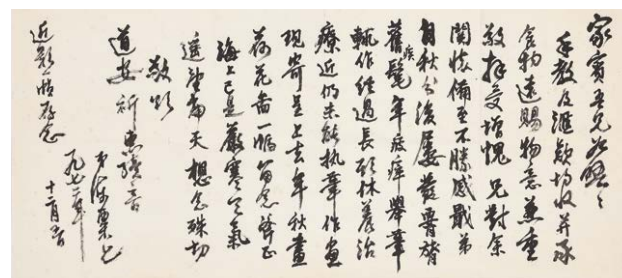 家賓吾兄如晤
手教及滙款均收并承
食物遠賜物意兼重
敬拜受增愧兄對余
關懷備至不勝感戢弟
自秋分後屢發胃
舊疾髦年痠痺舉筆
輒作經過長臥休養治
療近仍未能執筆作畫
現寄呈上去年秋畫
荷花一幅留念
海上已是嚴寒天氣
遥望南天想念殊切
敬頌
道安祈惠音
弟
一九七二年
十二月
近影一幀存念